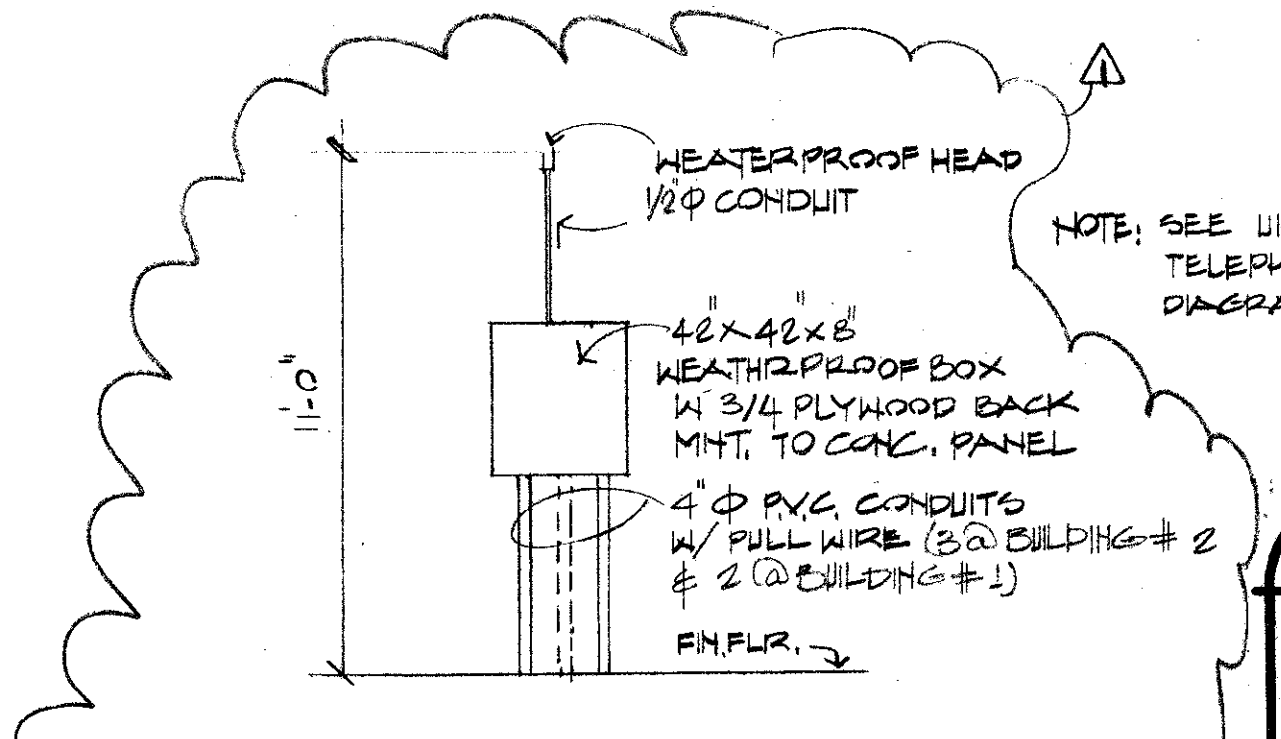 1
WEATERPROOF HEAD
1/2"Φ CONDUIT
NOTE: SEE
TELEPH
DIAGRA
42"X42"X8"
WEATHRPROOF BOX
W 3/4 PLYWOOD BACK
MNT. TO CONC. PANEL
11'-0"
4"Φ P.V.C. CONDUITS
W/ PULL WIRE (3@BUILDING# 2
& 2@BUILDING#1)
FIN.FLR.